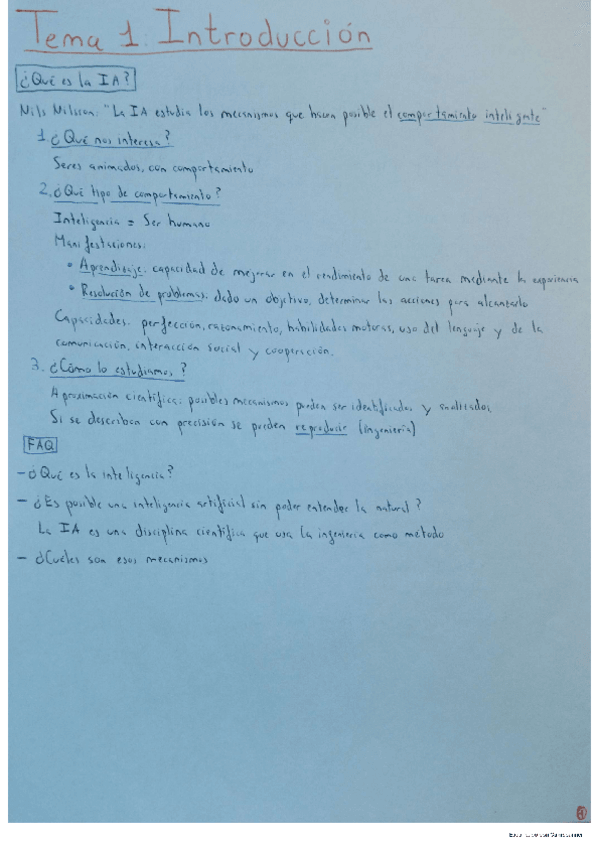 Tema 1: Introducción
¿Qué es la IA?
Nils Nilsson: "La IA estudia los mecanismos que hacen posible el comportamiento inteligente"
1. ¿Qué nos interesa?
Seres animados, con comportamiento
2. ¿Qué tipo de comportamiento?
Inteligencia = Ser humano
Manifestaciones:
• Aprendizaje: capacidad de mejorar en el rendimiento de una tarea mediante la experiencia
• Resolución de problemas: dado un objetivo, determinar las acciones para alcanzarlo
Capacidades: perfección, razonamiento, habilidades motoras, uso del lenguaje y de la
comunicación, interacción social y cooperación.
3. ¿Cómo lo estudiamos?
Aproximación científica: posibles mecanismos pueden ser identificados y analizados
Si se describen con precisión se pueden reproducir (ingeniería)
FAQ
- ¿Qué es la inteligencia?
- ¿Es posible una inteligencia artificial sin poder entender la natural?
La IA es una disciplina científica que usa la ingeniería como método
- ¿Cuáles son esos mecanismos
1